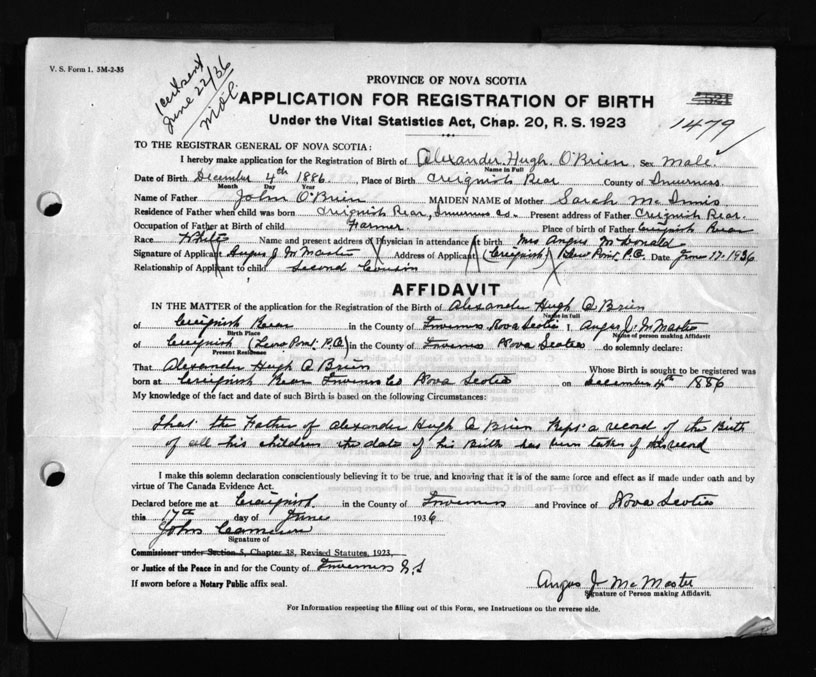 V. S. Form 1. 5M-2-35
1 cert sent
June 22/36
PROVINCE OF NOVA SCOTIA
APPLICATION FOR REGISTRATION OF BIRTH
Under the Vital Statistics Act, Chap. 20, R. S. 1923
1479
TO THE REGISTRAR GENERAL OF NOVA SCOTIA:
I hereby make application for the Registration of Birth of Alexander Hugh O'Brien Sex Male
Name in Full
Date of Birth December 4th 1886, Place of Birth Creignish Rear County of Inverness
Month Day Year
Name of Father John O'Brien MAIDEN NAME of Mother Sarah McInnis
Residence of Father when child was born Creignish Rear, Inverness Co. Present address of Father Creignish Rear.
Occupation of Father at Birth of child Farmer Place of birth of Father Creignish Rear
Race White Name and present address of Physician in attendance at birth Mrs Angus McDonald
Signature of Applicant Angus J McMaster Address of Applicant (Creignish) P.O. Date June 17. 1936
Relationship of Applicant to child Second Cousin
AFFIDAVIT
IN THE MATTER of the application for the Registration of the Birth of Alexander Hugh O Brien
Name in full
of Creignish Rear in the County of Inverness Nova Scotia I, Angus J. McMaster
Birth Place Name of person making Affidavit
of Creignish P.O.) in the County of Inverness Nova Scotia do solemnly declare:
Present Residence
That Alexander Hugh O Brien Whose Birth is sought to be registered was
born at Creignish Rear Inverness Co Nova Scotia on December 4th 1886
My knowledge of the fact and date of such Birth is based on the following Circumstances:
That the Father of Alexander Hugh O Brien Kept a record of the Birth
of all his children date of his Birth has been taken record
I make this solemn declaration conscientiously believing it to be true, and knowing that it is of the same force and effect as if made under oath and by
virtue of The Canada Evidence Act.
Declared before me at Creignish in the County of Inverness and Province of Nova Scotia
this 17th day of June 1936
John Cameron
Signature of
Commissioner under Section 5, Chapter 38, Revised Statutes, 1923,
or Justice of the Peace in and for the County of Inverness N.S
If sworn before a Notary Public affix seal.
Angus J McMaster
Signature of Person making Affidavit.
For Information respecting the filling out of this Form, see Instructions on the reverse side.